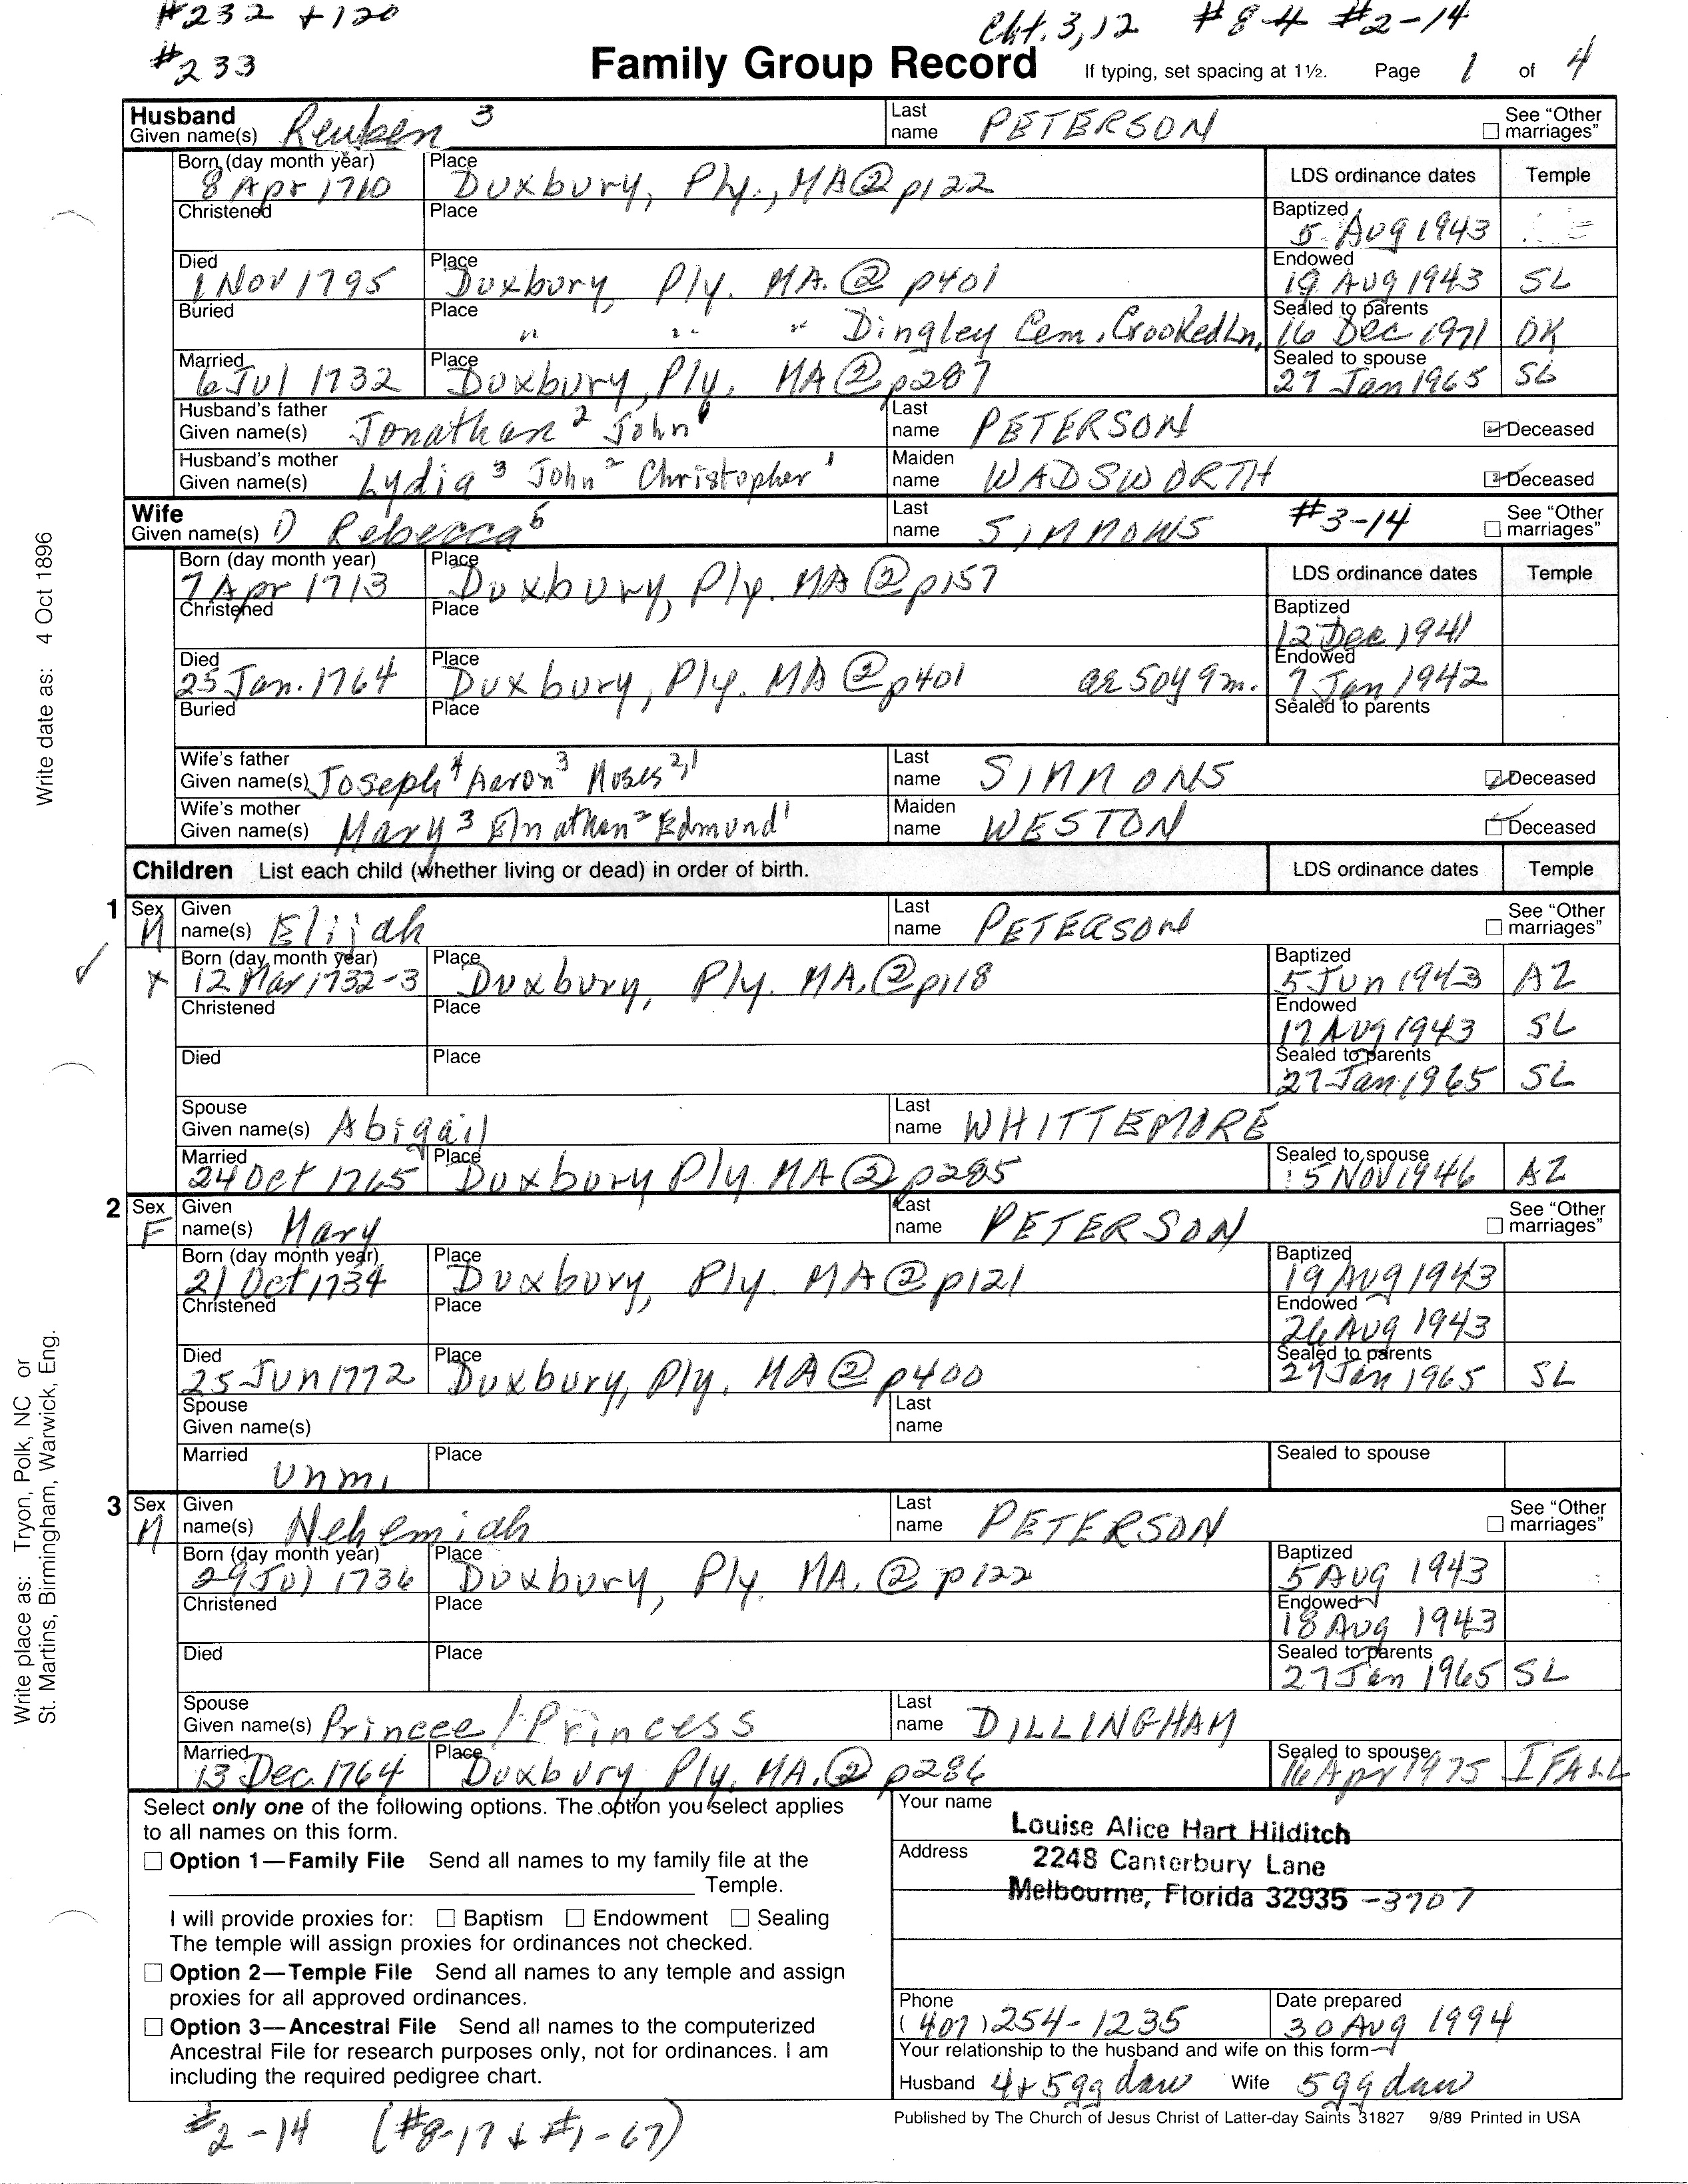 #232 +120
Cht. 3,12 #8-4 #2-14
#233
Family Group Record If typing, set spacing at 1½. Page 1 of 4
Husband
Given name(s) Reuben 3 Last name PETERSON See "Other marriages"
Born (day month year) 8 Apr 1710 Place Duxbury, Ply., MA @ p122 LDS ordinance dates Temple
Christened Place Baptized 5 Aug 1943
Died 1 Nov 1795 Place Duxbury, Ply. MA. @ p401 Endowed 19 Aug 1943 SL
Buried Place " " " Dingley Cem, Crooked Ln, Sealed to parents 16 Dec 1971 OK
Married 6 Jul 1732 Place Duxbury, Ply, MA @ p287 Sealed to spouse 27 Jan 1965 SL
Husband's father Given name(s) Jonathan 2 John 1 Last name PETERSON Deceased
Husband's mother Given name(s) Lydia 3 John 2 Christopher 1 Maiden name WADSWORTH Deceased
Wife
Given name(s) D Rebecca 5 Last name SIMMONS #3-14 See "Other marriages"
Born (day month year) 7 Apr 1713 Place Duxbury, Ply. MA @ p157 LDS ordinance dates Temple
Christened Place Baptized 12 Dec 1941
Died 25 Jan. 1764 Place Duxbury, Ply. MA @ p401 ae 50y 9m. Endowed 7 Jan 1942
Buried Place Sealed to parents
Wife's father Given name(s) Joseph 4 Aaron 3 Moses 2,1 Last name SIMMONS Deceased
Wife's mother Given name(s) Mary 3 Elnathan 2 Edmund 1 Maiden name WESTON Deceased
Children List each child (whether living or dead) in order of birth. LDS ordinance dates Temple
1 Sex M Given name(s) Elijah Last name PETERSON See "Other marriages"
x Born (day month year) 12 Mar 1732-3 Place Duxbury, Ply. MA. @ p118 Baptized 5 Jun 1943 AZ
Christened Place Endowed 17 Aug 1943 SL
Died Place Sealed to parents 27 Jan 1965 SL
Spouse Given name(s) Abigail Last name WHITTEMORE
Married 24 Oct 1765 Place Duxbury Ply MA @ p285 Sealed to spouse 15 Nov 1946 AZ
2 Sex F Given name(s) Mary Last name PETERSON See "Other marriages"
Born (day month year) 21 Oct 1734 Place Duxbury, Ply. MA @ p121 Baptized 19 Aug 1943
Christened Place Endowed 26 Aug 1943
Died 25 Jun 1772 Place Duxbury, Ply, MA @ p400 Sealed to parents 27 Jan 1965 SL
Spouse Given name(s) Last name
Married unm. Place Sealed to spouse
3 Sex M Given name(s) Nehemiah Last name PETERSON See "Other marriages"
Born (day month year) 29 Jul 1736 Place Duxbury, Ply. MA. @ p122 Baptized 5 Aug 1943
Christened Place Endowed 18 Aug 1943
Died Place Sealed to parents 27 Jan 1965 SL
Spouse Given name(s) Princee / Princess Last name DILLINGHAM
Married 13 Dec. 1764 Place Duxbury Ply, MA. @ p286 Sealed to spouse 16 Apr 1975 IFALL
Select only one of the following options. The option you select applies
to all names on this form.
Option 1—Family File Send all names to my family file at the
Temple.
I will provide proxies for: Baptism Endowment Sealing
The temple will assign proxies for ordinances not checked.
Option 2—Temple File Send all names to any temple and assign
proxies for all approved ordinances.
Option 3—Ancestral File Send all names to the computerized
Ancestral File for research purposes only, not for ordinances. I am
including the required pedigree chart.
Your name Louise Alice Hart Hilditch
Address 2248 Canterbury Lane
Melbourne, Florida 32935 -3707
Phone (407) 254-1235 Date prepared 30 Aug 1994
Your relationship to the husband and wife on this form
Husband 4+5gg daw Wife 5gg daw
Published by The Church of Jesus Christ of Latter-day Saints 31827 9/89 Printed in USA
#2-14 (#8-17 + #1-67)
Write date as: 4 Oct 1896
Write place as: Tryon, Polk, NC or
St. Martins, Birmingham, Warwick, Eng.